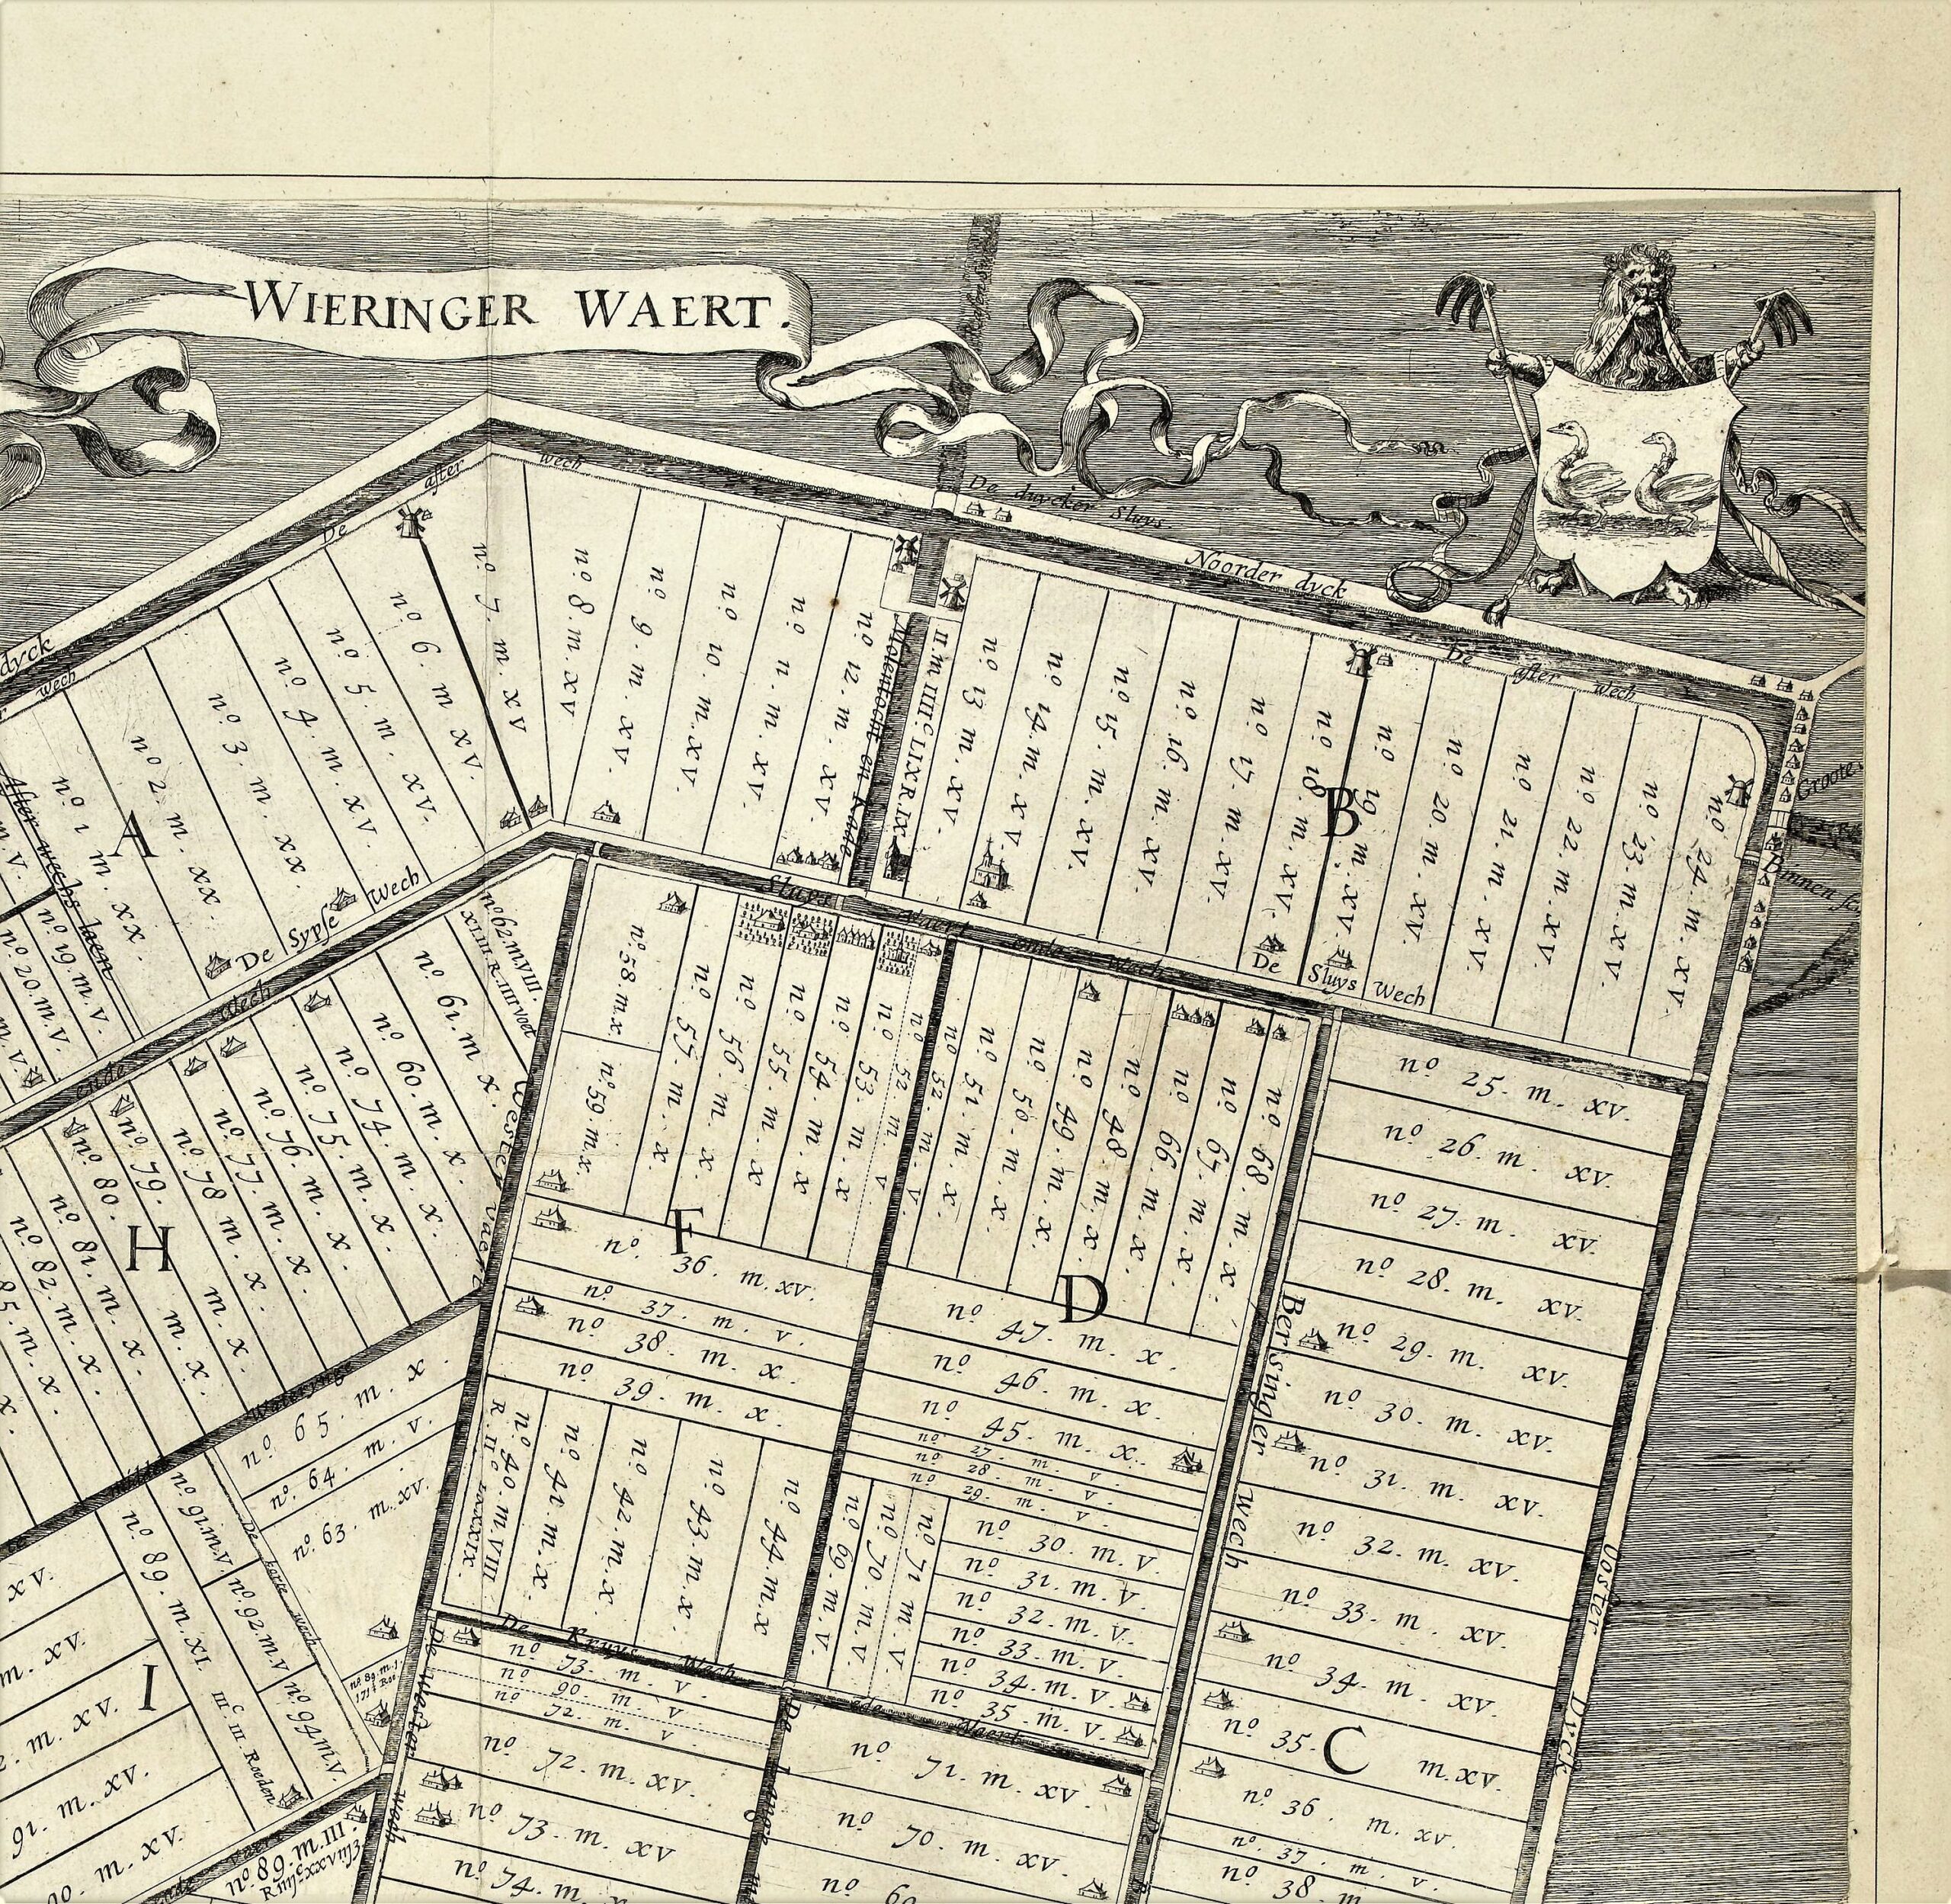 WIERINGER WAERT.
De duycker Sluys.
Noorder dyck
De after wech
De after wech
dyck
wech
After wechs laen
A
nº 1 m. xx.
nº 2 m. xx.
nº 3. m. xx.
nº 4. m. xv.
nº 5. m. xv.
nº 6. m xv.
nº 7. m. xv
nº 8. m. xv
nº 9. m. xv.
nº 10. m. xv.
nº 11. m. xv.
nº 12. m. xv.
Molentocht en Kade
II. m. IIII.C LIX R. IX
nº 13 m. xv.
nº 14. m. xv.
nº 15. m. xv.
nº 16. m. xv.
nº 17. m. xv.
nº 18. m. xv.
B
nº 19. m. xv.
nº 20. m. xv.
nº 21. m. xv.
nº 22. m. xv.
nº 23. m. xv.
nº 24. m. xv.
Groote
Binnen
nº 19. m. v.
nº 20. m. v.
De Sypse Wech
Sluys Vaert ende Wech
De Sluys Wech
ende Wech
nº 62. m. VIII.
XLIII R. IIII voet
nº 61. m x.
nº 60. m. x.
nº 74. m. x.
nº 75. m. x.
nº 76. m. x.
nº 77. m. x.
nº 78 m. x.
nº 79. m. x.
nº 80. m. x.
nº 81. m. x.
nº 82. m. x.
H
Wester Vaert
nº 58. m. x
nº 59 m. x.
nº 57. m. x.
nº 56. m. x.
nº 55. m. x
nº 54. m. x
nº 53. m. x
nº 52 m. v.
nº 52. m. v.
nº 51. m. x.
nº 50. m. x.
nº 49. m. x.
nº 48. m. x.
nº 66. m. x.
nº 67. m. x.
nº 68. m. x.
F
nº 36. m. xv.
nº 37. m. v.
nº 38. m. x.
nº 39. m. x.
nº 40. m. VIII
R. IIC LXXXIX.
nº 41. m. x.
nº 42. m. x.
nº 43. m. x.
nº 44. m. x
D
nº 47. m. x.
nº 46. m. x.
nº 45. m. x.
nº 27. m. v.
nº 28. m. v.
nº 29. m. v.
nº 69. m. v.
nº 70. m. v.
nº 71 m v.
nº 30. m. v.
nº 31. m. v.
nº 32. m. v.
nº 33. m. v.
nº 34. m. v.
nº 35. m. v.
Bersinger Wech
nº 25. m. xv.
nº 26. m. xv.
nº 27. m. xv.
nº 28. m. xv.
nº 29. m. xv.
nº 30. m. xv.
nº 31. m. xv.
nº 32. m. xv.
nº 33. m. xv.
nº 34. m. xv.
nº 35. m. xv.
C
nº 36. m. xv.
nº 37. m. v.
nº 38. m.
Ooster Dyck
Wateringe
nº 65. m. x.
nº 64. m. v.
nº 63. m. xv.
De korte wech
nº 91. m. v.
nº 92. m. v
nº 94. m. v.
nº 89. m. XI.
IIIC III Roeden
nº 89. m. 1.
I
xv.
m. xv.
m. xv.
91. m. xv.
m. xv.
nº 89. m. III.
De Wester wech
De Kruys Wech
ede Vaert
nº 73. m. v.
nº 90. m. v
nº 72. m. v.
nº 72. m. xv.
nº 73. m. xv
nº 74. m.
De Lange
nº 71. m. xv
nº 70. m. xv.
nº 69
De